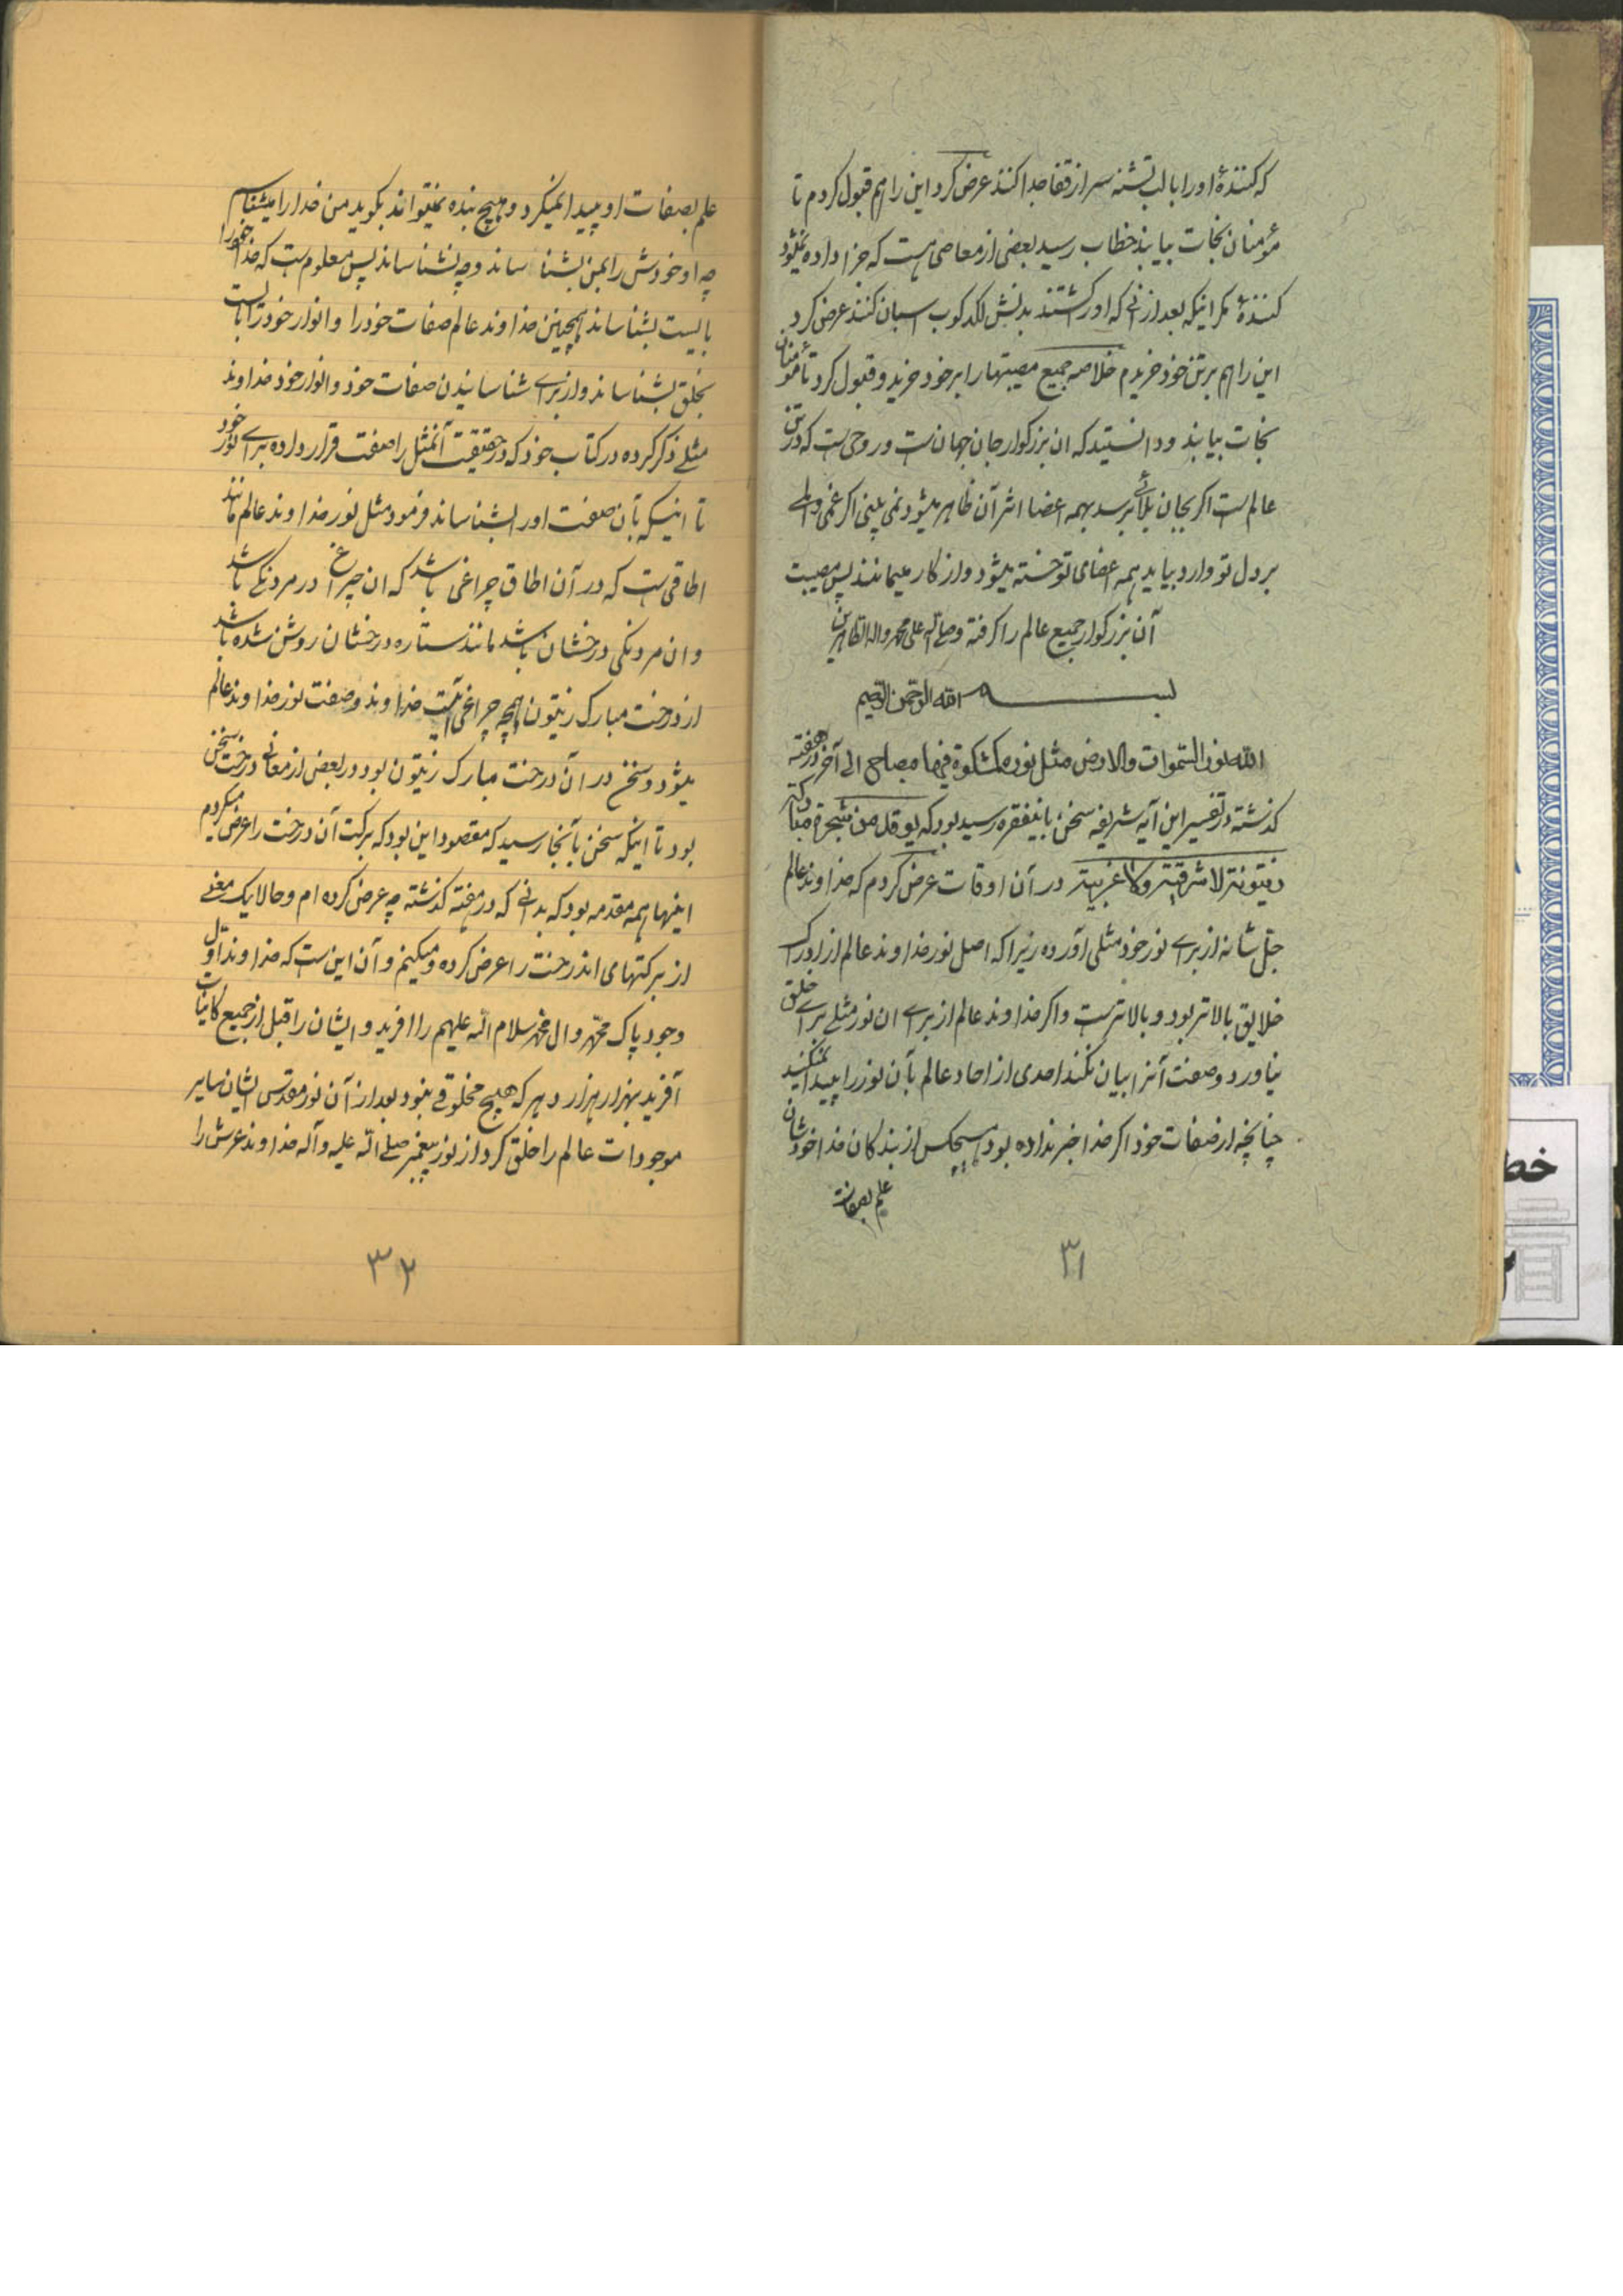 که کنندهٔ او را با لب تشنه سر از قفا جدا کنند عرض کرد این را هم قبول کردم تا
مؤمنان نجات بیابند خطاب رسید بعضی از معاصی هست که جزا داده نمیشود
کنندهٔ مگر اینکه بعد از آنی که او را کشتند بدنش لگدکوب اسبان کنند عرض کرد
این را هم برتن خود خریدم خلاصه جمیع مصیبتها را بر خود خرید و قبول کرد تا مؤمنان
نجات بیابند و دانستید که ان بزرکوار جان جهان ست و روحی ست که در تن
عالم ست اکر بجان بلائی برسد بهمه اعضا اثر آن ظاهر میشود نمی بینی اکر غمی و المی
بر دل تو وارد بیاید همه اعضای تو خسته میشود و از کار میمانند پس مصیبت
آن بزرکوار جمیع عالم را کرفته وصلی الله علی محمد واله الطاهرین
بسم الله الرحمن الرحیم
الله نور السموات والارض مثل نوره کمشکوة فیها مصباح الی آخر در هفته
کذشته در تفسیر این آیه شریفه سخن باینفقره رسید بود که یوقد من شجرة مبارکة
زیتونة لا شرقیة ولا غربیة در آن اوقات عرض کردم که خداوند عالم
جل شانه از برای نور خود مثلی آورده زیرا که اصل نور خداوند عالم از ادراک
خلایق بالاتر بود و بالاتر ست واکر خداوند عالم از برای ان نور مثلی برای خلق
نیاورد و صفت آنرا بیان نکند احدی از احاد عالم بآن نور راه پیدا نمیکنید
چنانچه از صفات خود اکر خدا خبر نداده بود هیچکس از بندکان خدا خودشان
علم بصفات
۳۱
علم بصفات او پیدا نمیکرد و هیچ بنده نمیتواند بکوید من خدا را میشناسم
چه او خودش را بمن بشناساند و چه نشناساند پس معلوم ست که خدا خود را
بایست بشناساند همچنین خداوند عالم صفات خود را و انوار خود را بایست
بخلق بشناساند و از برای شناسانیدن صفات خود و انوار خود خداوند
مثلی ذکر کرده در کتاب خود که در حقیقت آنمثل را صفت قرار داده برای نور خود
تا اینکه بآن صفت او را بشناساند فرمود مثل نور خداوند عالم مانند
اطاقی ست که در آن اطاق چراغی باشد که ان چراغ در مردنکی باشد
و ان مردنکی درخشان باشد مانند ستاره درخشان روشن شده باشد
از درخت مبارک زیتون همچه چراغی آیت خداوند و صفت نور خداوند عالم
میشود و سخن در آن درخت مبارک زیتون بود و در بعض از معانی درخت سخن
بود تا اینکه سخن بآنجا رسید که مقصود این بود که برکت آن درخت را عرض میکردم
اینها همه مقدمه بود که بدانی که در هفته کذشته چه عرض کرده ام و حالا یک معنی
از برکتهای اندرخت را عرض کرده و میکنم و آن این ست که خداوند اول
وجود پاک محمد وال محمد سلام الله علیهم را افرید و ایشان را قبل از جمیع کاینات
آفرید بهزار هزار دهر که هیچ مخلوقی نبود بعد از آن نور مقدس ایشان سایر
موجودات عالم را خلق کرد از نور پیغمبر صلی الله علیه وآله خداوند عرش را
۳۲
خط